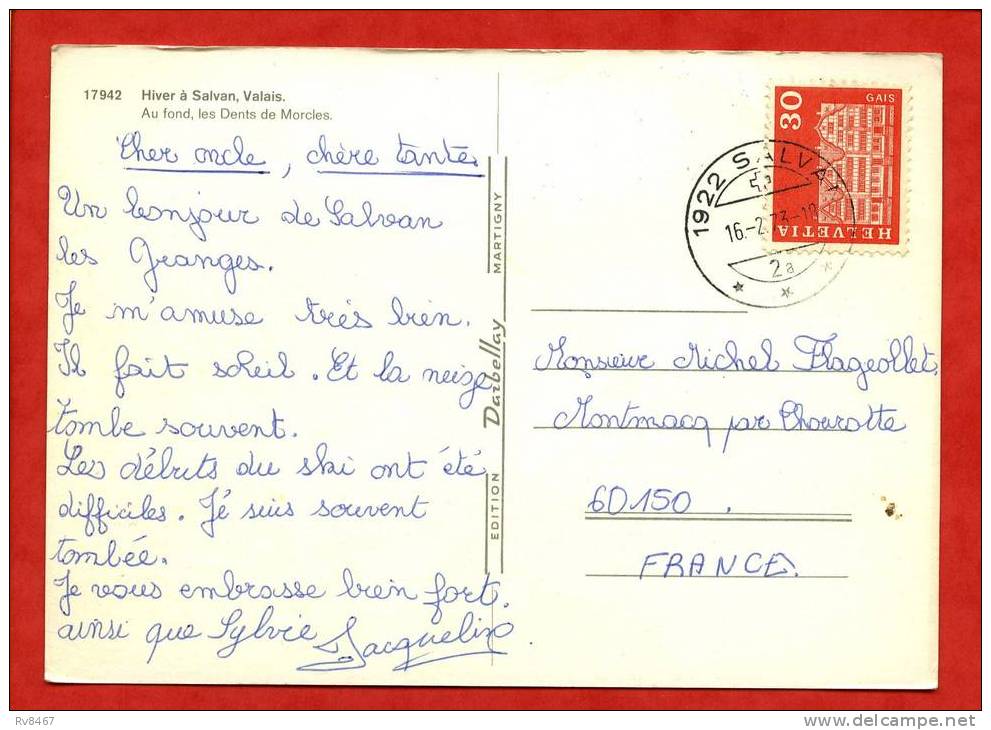 17942 Hiver à Salvan, Valais.
Au fond, les Dents de Morcles.
Cher oncle, chère tante
Un bonjour de Salvan
les Granges.
Je m'amuse très bien.
Il fait soleil. Et la neige
tombe souvent.
Les débuts du ski ont été
difficiles. Jé suis souvent
tombée.
Je vous embrasse bien fort.
ainsi que Sylvie Jacqueline
EDITION Darbellay MARTIGNY
1922 SALVAN
16.-2.73-1
2a
30
GAIS
HELVETIA
Monsieur Michel Flageollet
Montmacq par Thourotte
60150.
FRANCE.
Rv8467
www.delcampe.net